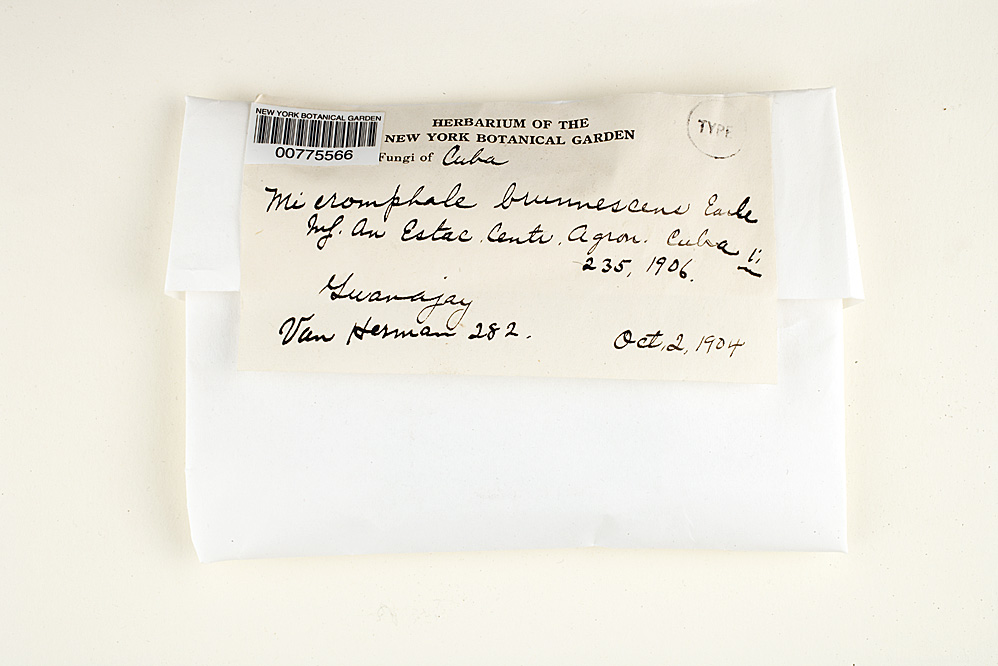 NEW YORK BOTANICAL GARDEN
00775566
HERBARIUM OF THE
NEW YORK BOTANICAL GARDEN
TYPE
Fungi of Cuba
Micromphale brunnescens Earle
Inf. An Estac. Centr. Agron. Cuba 1:
235, 1906.
Guanajay
Van Herman 282.
Oct. 2, 1904